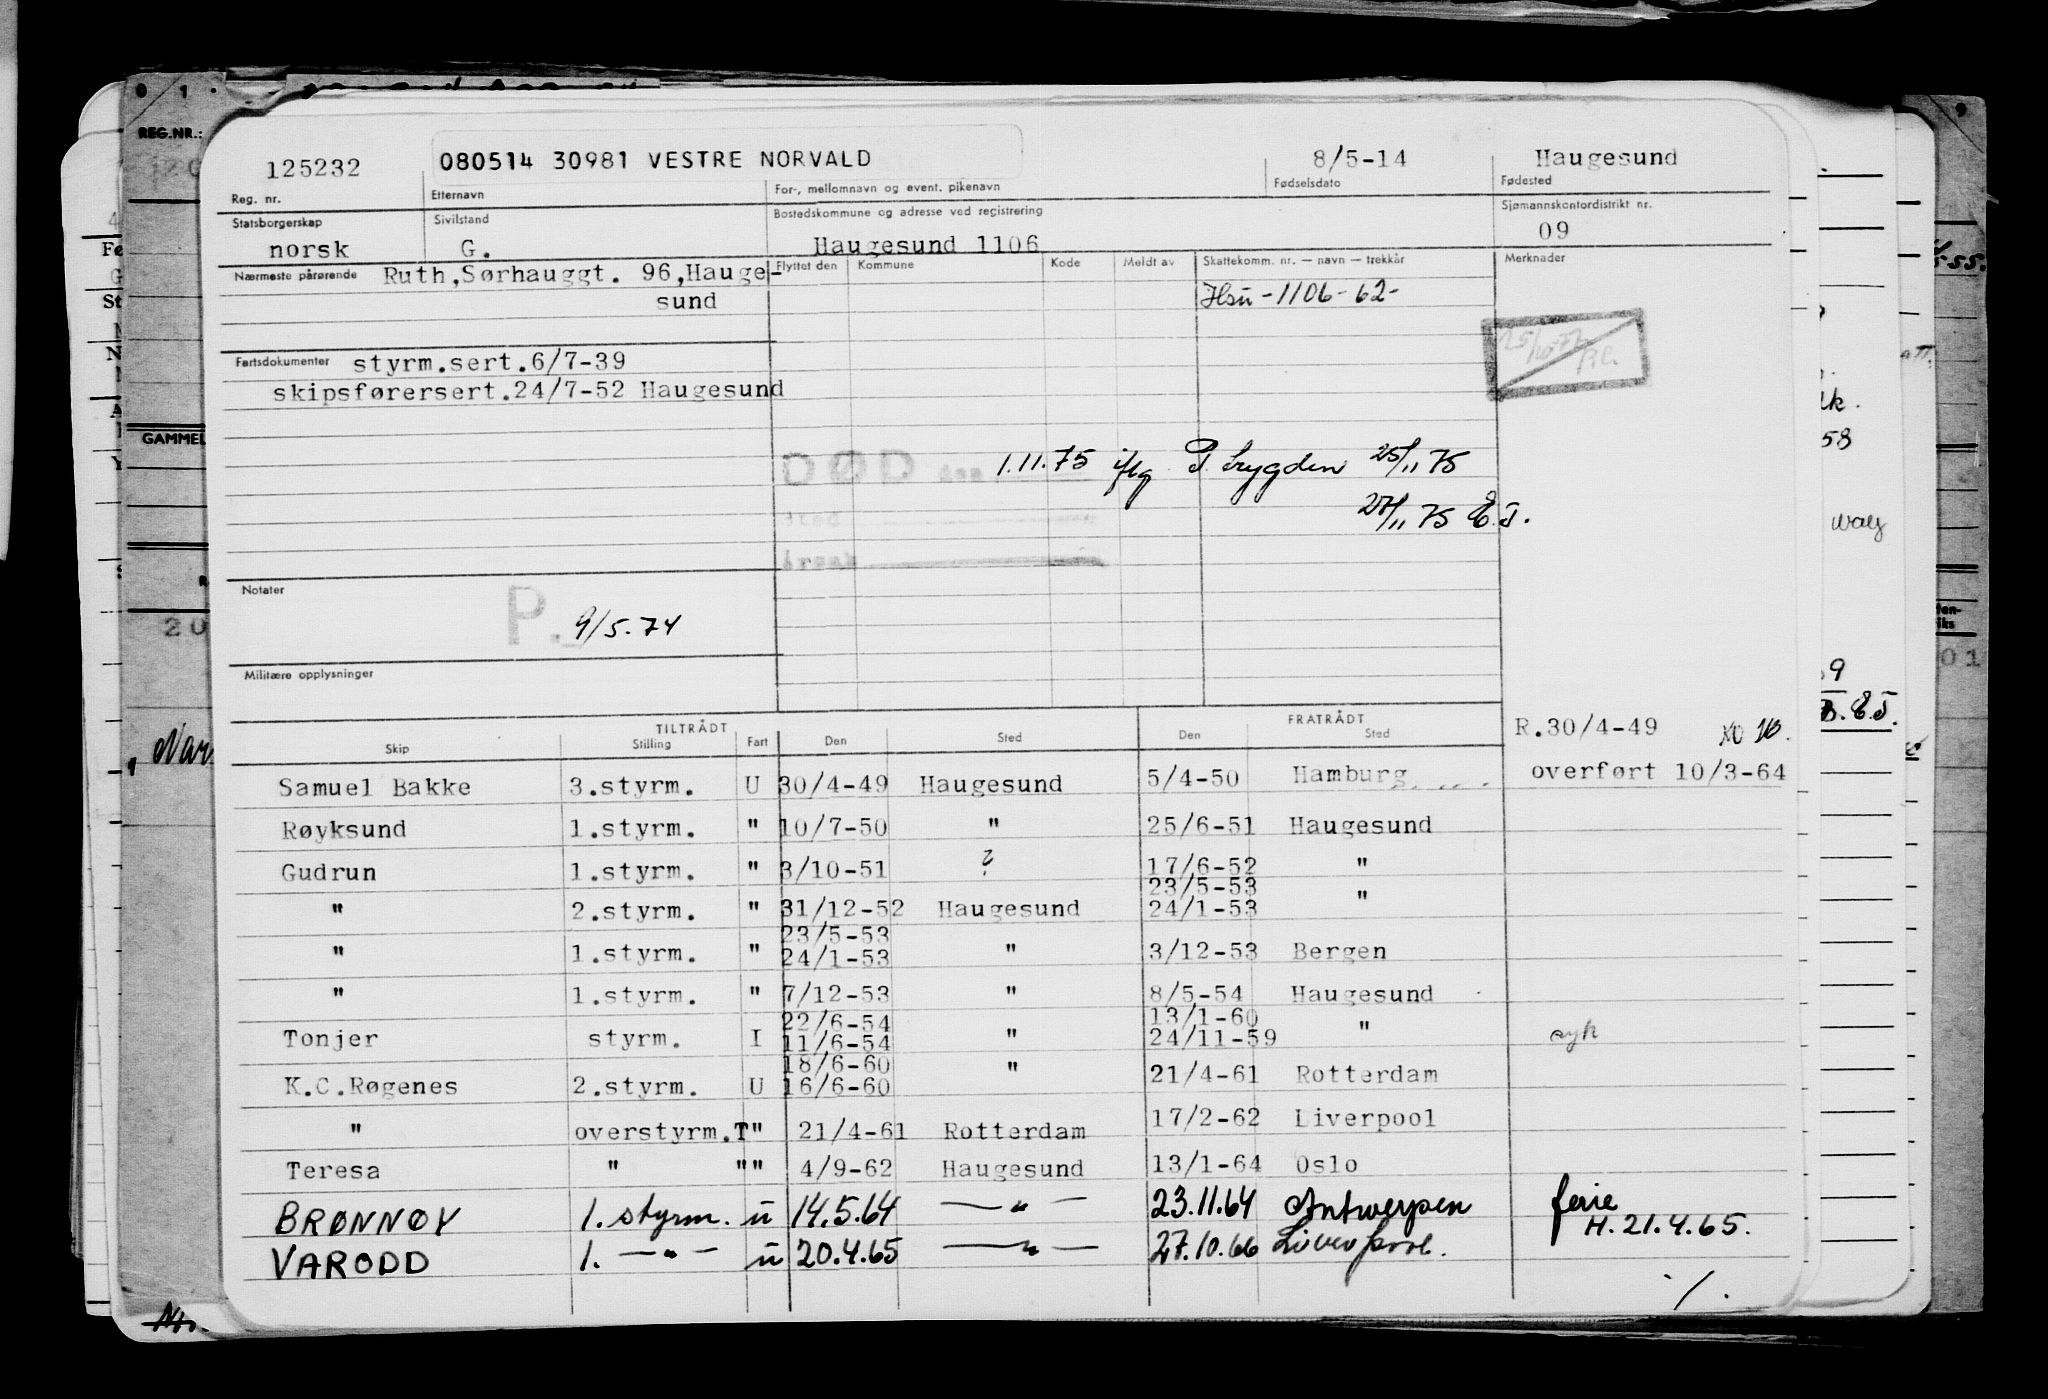 125232 080514 30981 VESTRE NORVALD 8/5-14 Haugesund
Reg. nr. Etternavn For-, mellomnavn og event. pikenavn Fødselsdato Fødested
Statsborgerskap Sivilstand Bostedskommune og adresse ved registrering Sjømannskontordistrikt nr.
norsk G. Haugesund 1106 09
Nærmeste pårørende Ruth,Sørhauggt. 96,Hauge- Flyttet den Kommune Kode Meldt av Skattekomm. nr. — navn — trekkår Merknader
sund Hsu -1106-62-
Fartsdokumenter styrm.sert.6/7-39
skipsførersert.24/7-52 Haugesund
DØD den 1.11.75 iflg P. trygden 25/11 75
Sted 27/11 75 E.J.
Årsak
Notater P. 9/5.74
Militære opplysninger
TILTRÅDT FRATRÅDT R.30/4-49
Skip Stilling Fart Den Sted Den Sted
Samuel Bakke 3.styrm. U 30/4-49 Haugesund 5/4-50 Hamburg overført 10/3-64
Røyksund 1.styrm. " 10/7-50 " 25/6-51 Haugesund
Gudrun 1.styrm. " 3/10-51 ? 17/6-52 "
23/5-53
" 2.styrm. " 31/12-52 Haugesund 24/1-53 "
23/5-53
" 1.styrm. " 24/1-53 " 3/12-53 Bergen
" 1.styrm. " 7/12-53 " 8/5-54 Haugesund
22/6-54 13/1-60
Tonjer styrm. I 11/6-54 " 24/11-59 " syk
18/6-60
K.C.Røgenes 2.styrm. U 16/6-60 " 21/4-61 Rotterdam
" overstyrm.T" 21/4-61 Rotterdam 17/2-62 Liverpool
Teresa " "" 4/9-62 Haugesund 13/1-64 Oslo
BRØNNØY 1. styrm. u 14.5.64 — " — 23.11.64 Antwerpen ferie
H. 21.4.65.
VARODD 1. — " — u 20.4.65 — " — 27.10.66 Liverpool.